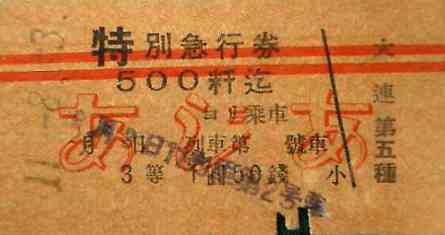 特別急行券
500粁迄
ヨリ乗車
月 日 列車第 號車
3等 1圓50錢 小
あじあ
大連第五種